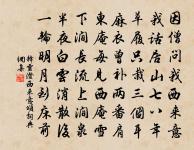 因僧問我西來意
我話居山七八年
草履只裁三個耳
麻衣曾補兩番肩
東庵每見西庵雪
下澗長流上澗泉
半夜白雲消散後
一輪明月到床前
釋雲澄西來意頌詞典
網集